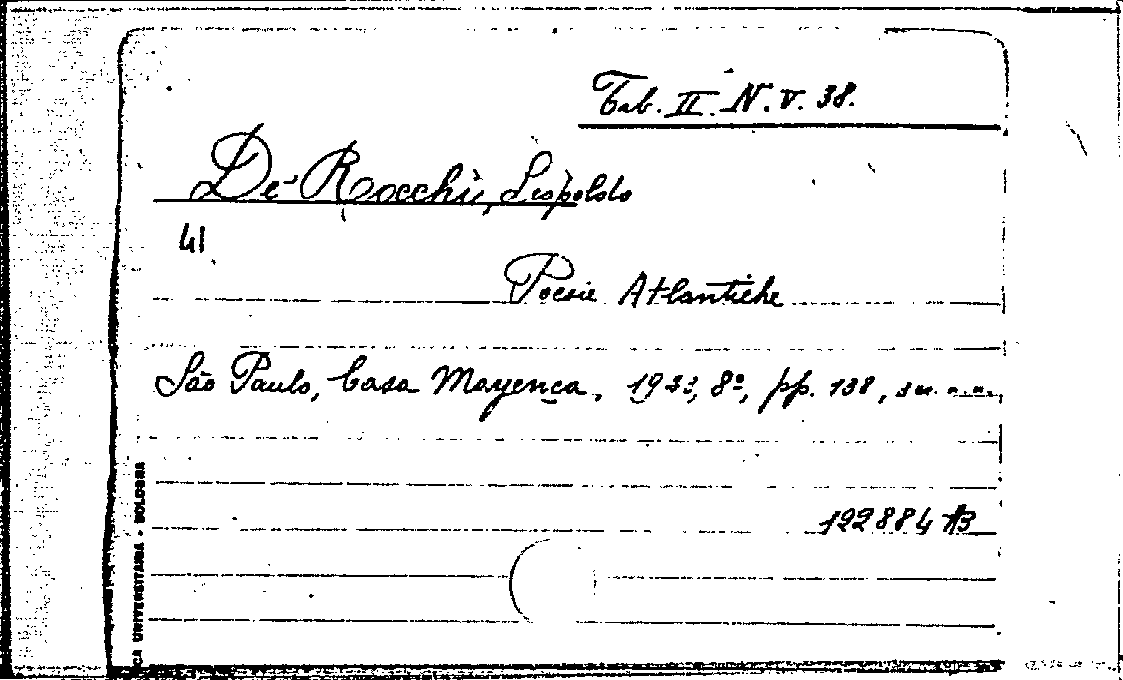 Tab. II. N. V. 38.
De Rocchi, Leopoldo
41
Poesie Atlantiche
São Paulo, Casa Mayença, 1933, 8º, pp. 138,
122884 B
CA UNIVERSITARIA - BOLOGNA